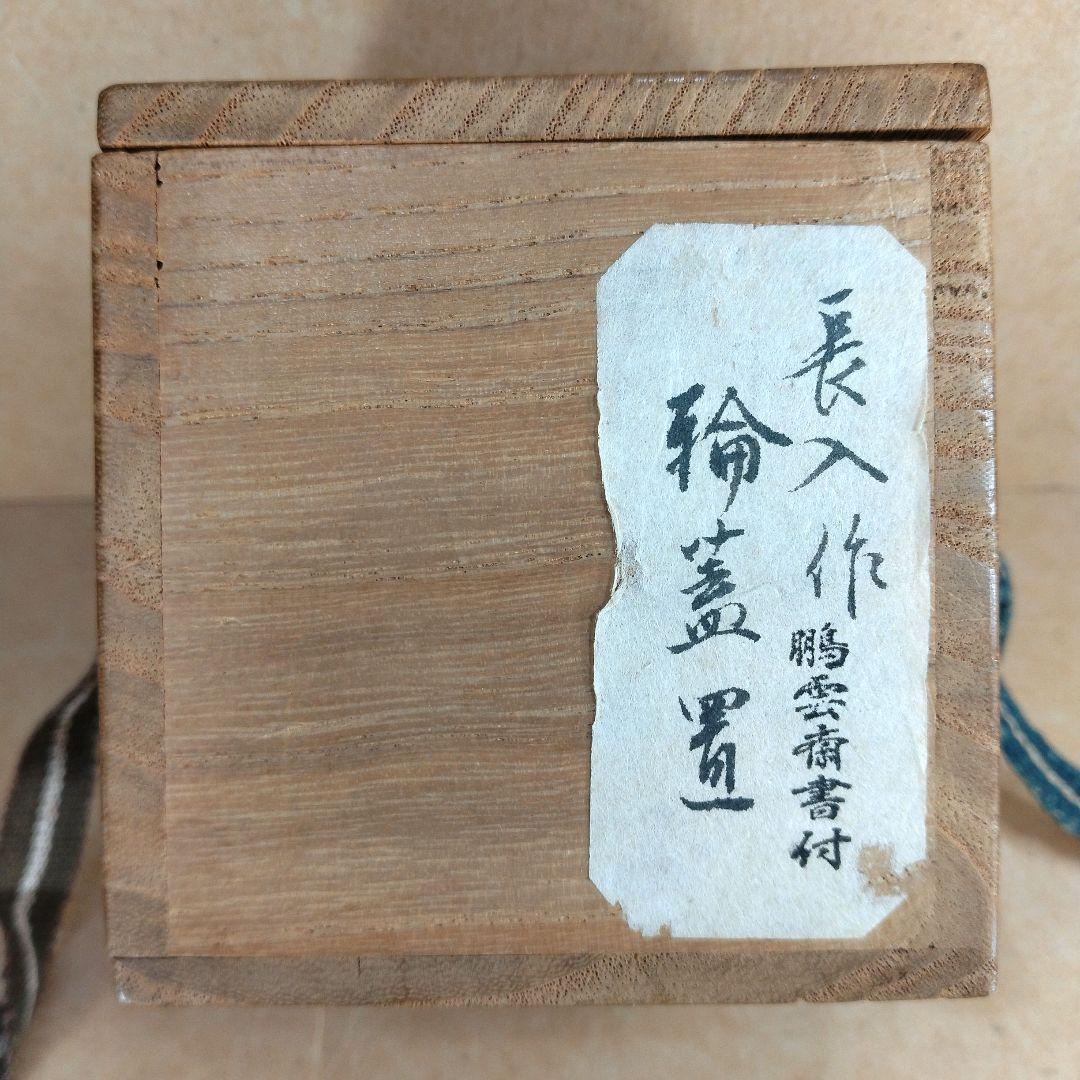 長入作 鵬雲斎書付
輪蓋置